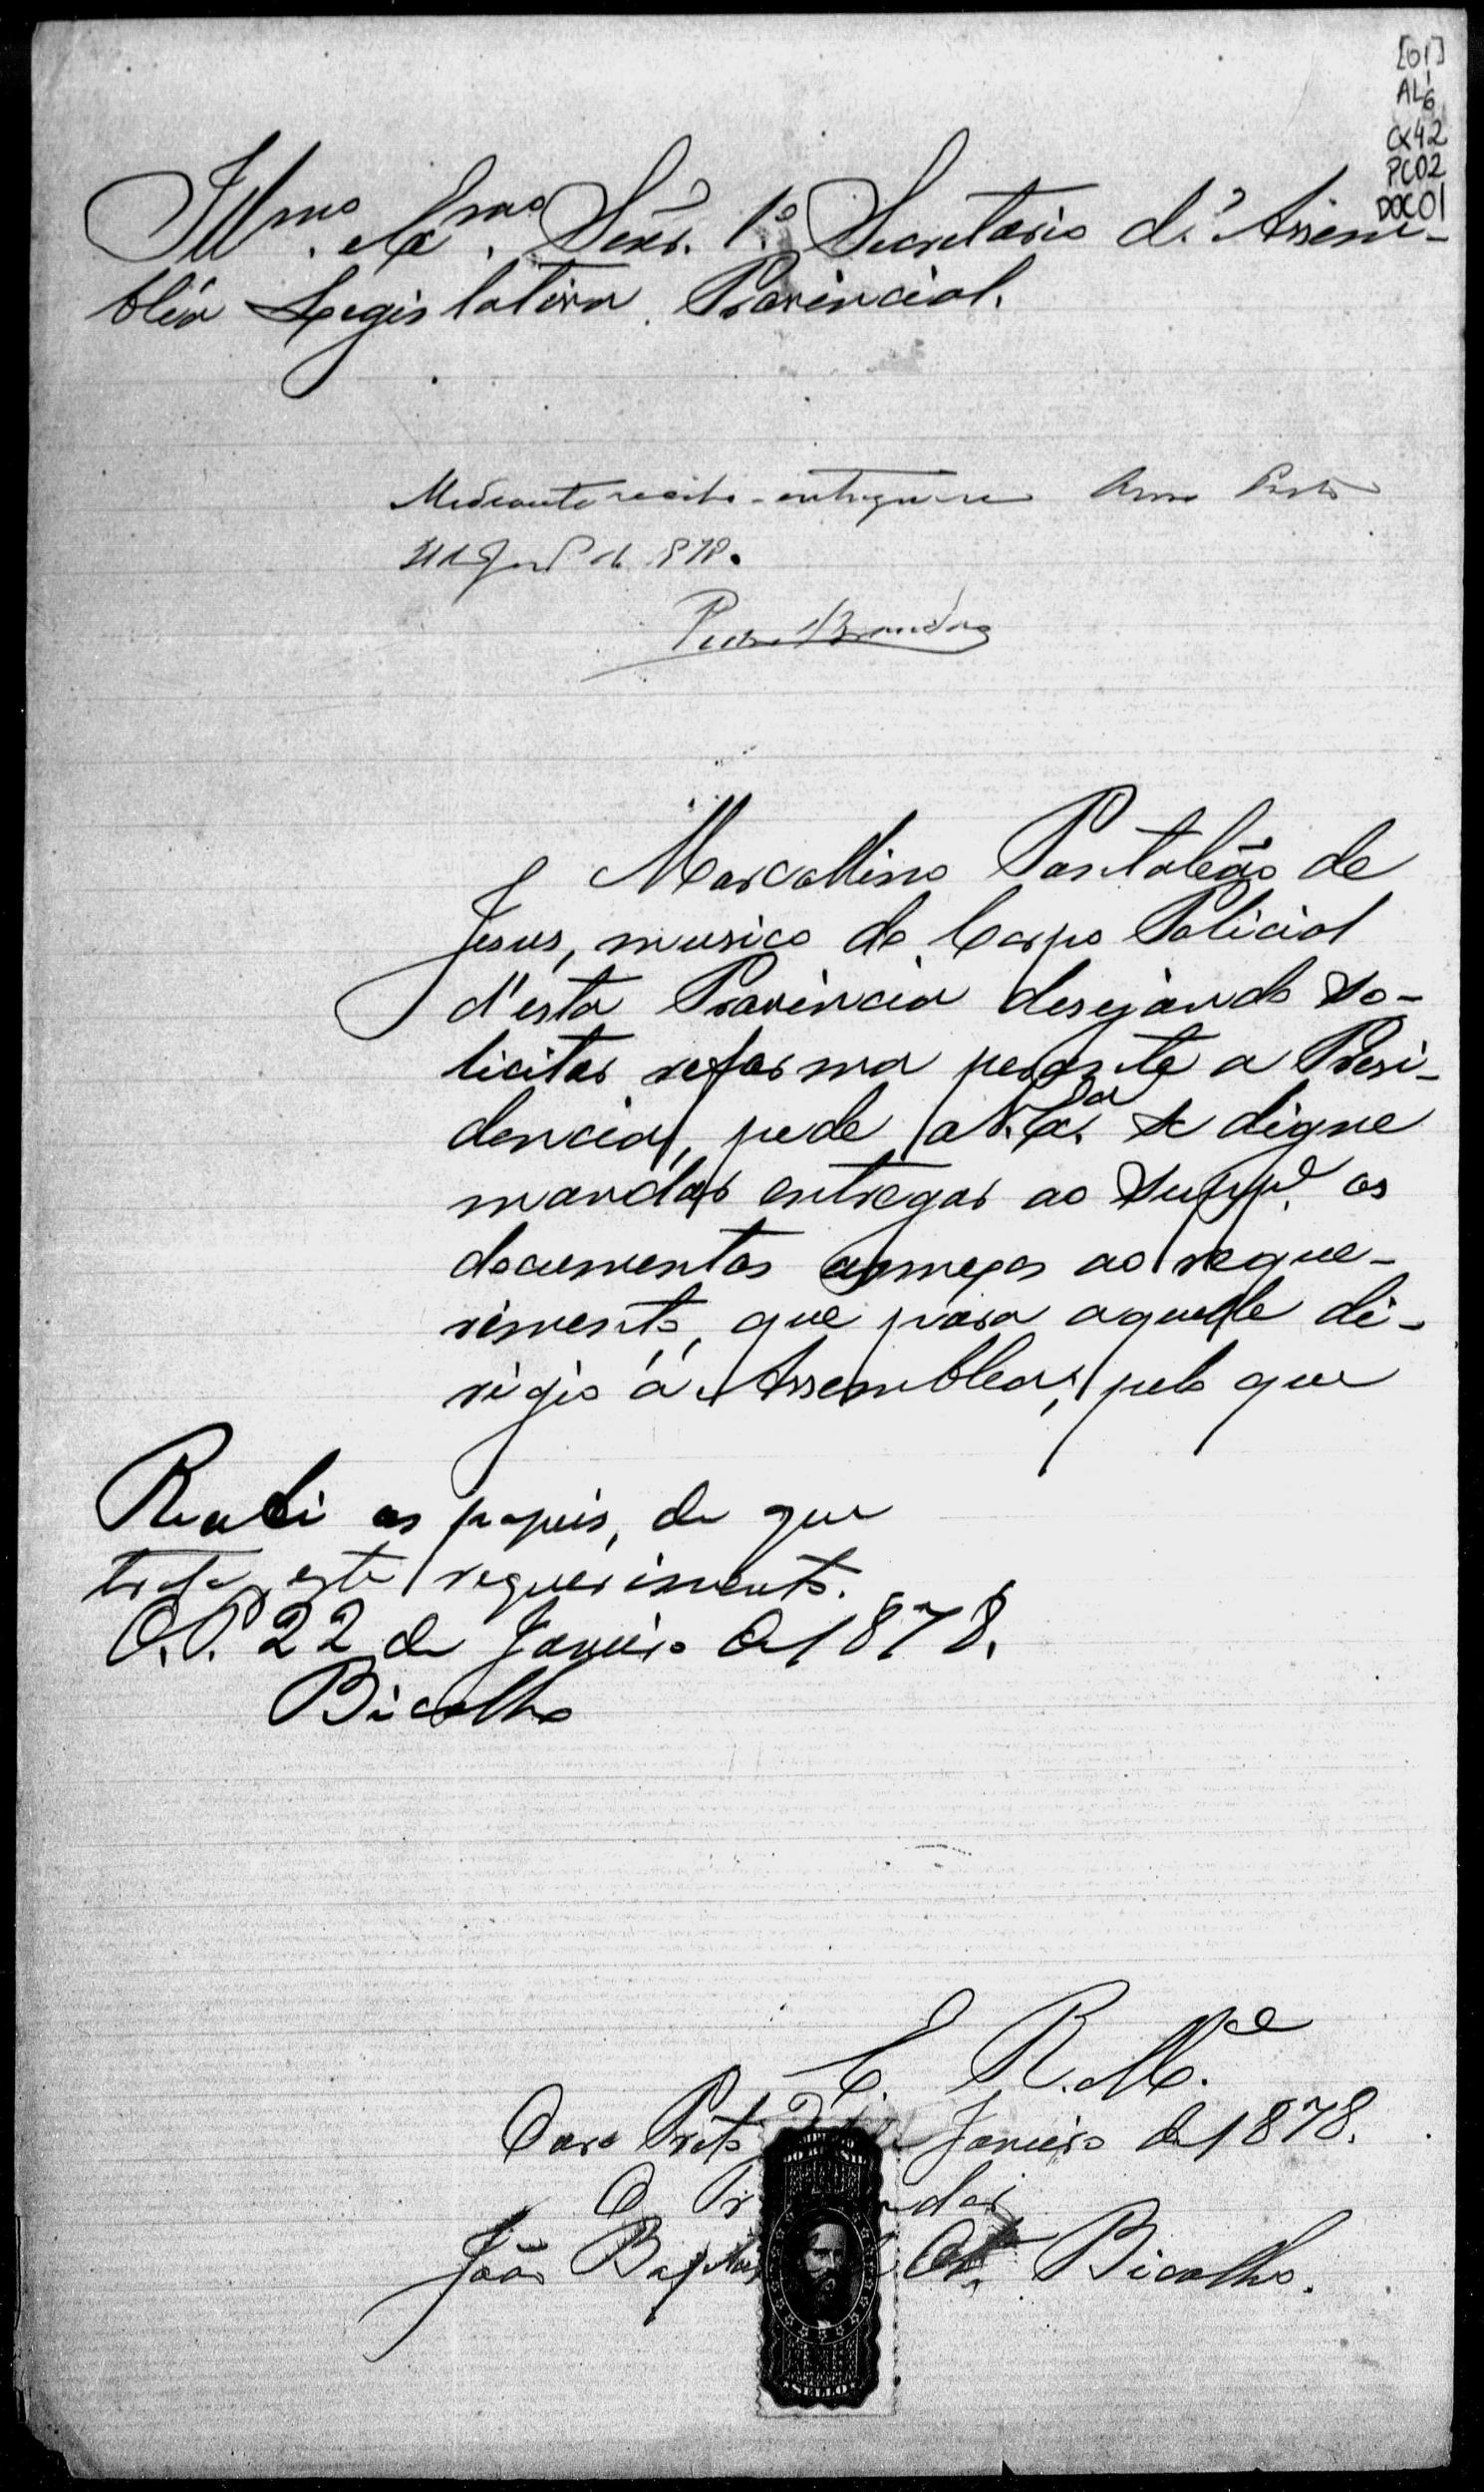 [01]
AL 6
CX42
PC02
DOC01
Illmo. e Exmo. Senr. 1º Secretario d'Assem-
bléa Legislativa Provincial.
Mediante recibo entregue-se Ouro Preto
21 de Janº de 878.
Pedro Brandão
Marcollino Pantaleão de
Jesus, musico do Corpo Policial
d'esta Provincia desejando so-
licitar reforma perante a Presi-
dencia, pede a V. Exa. se digne
mandar entregar ao Suppe. os
documentos annexos ao reque-
rimento, que para aquelle di-
rigio á Assembléa; pelo que
Recebi os papeis, de que
trata este requerimento.
O. P. 22 de Janeiro de 1878.
Bicalho
E. R. Mce.
Ouro Preto Janeiro de 1878.
O Pr dor
João Baptis Bicalho.
DO BRASIL
SELLO